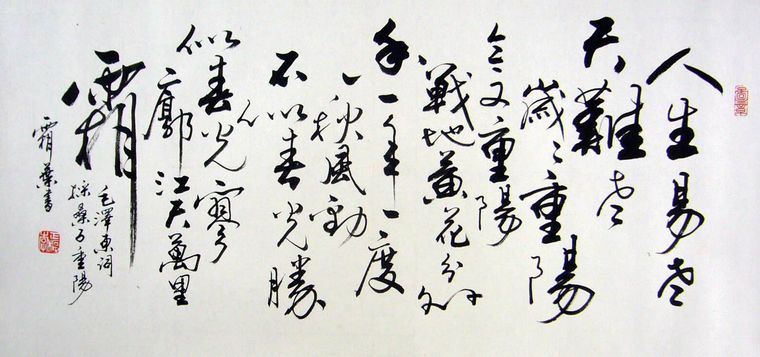 人生易老
天難老
歲〻重陽
今又重陽
戰地黃花分外
香一年一度
秋風勁
不似春光勝
似春光寥
廓江天萬里
霜
毛澤東詞
採桑子重陽
霜葉書